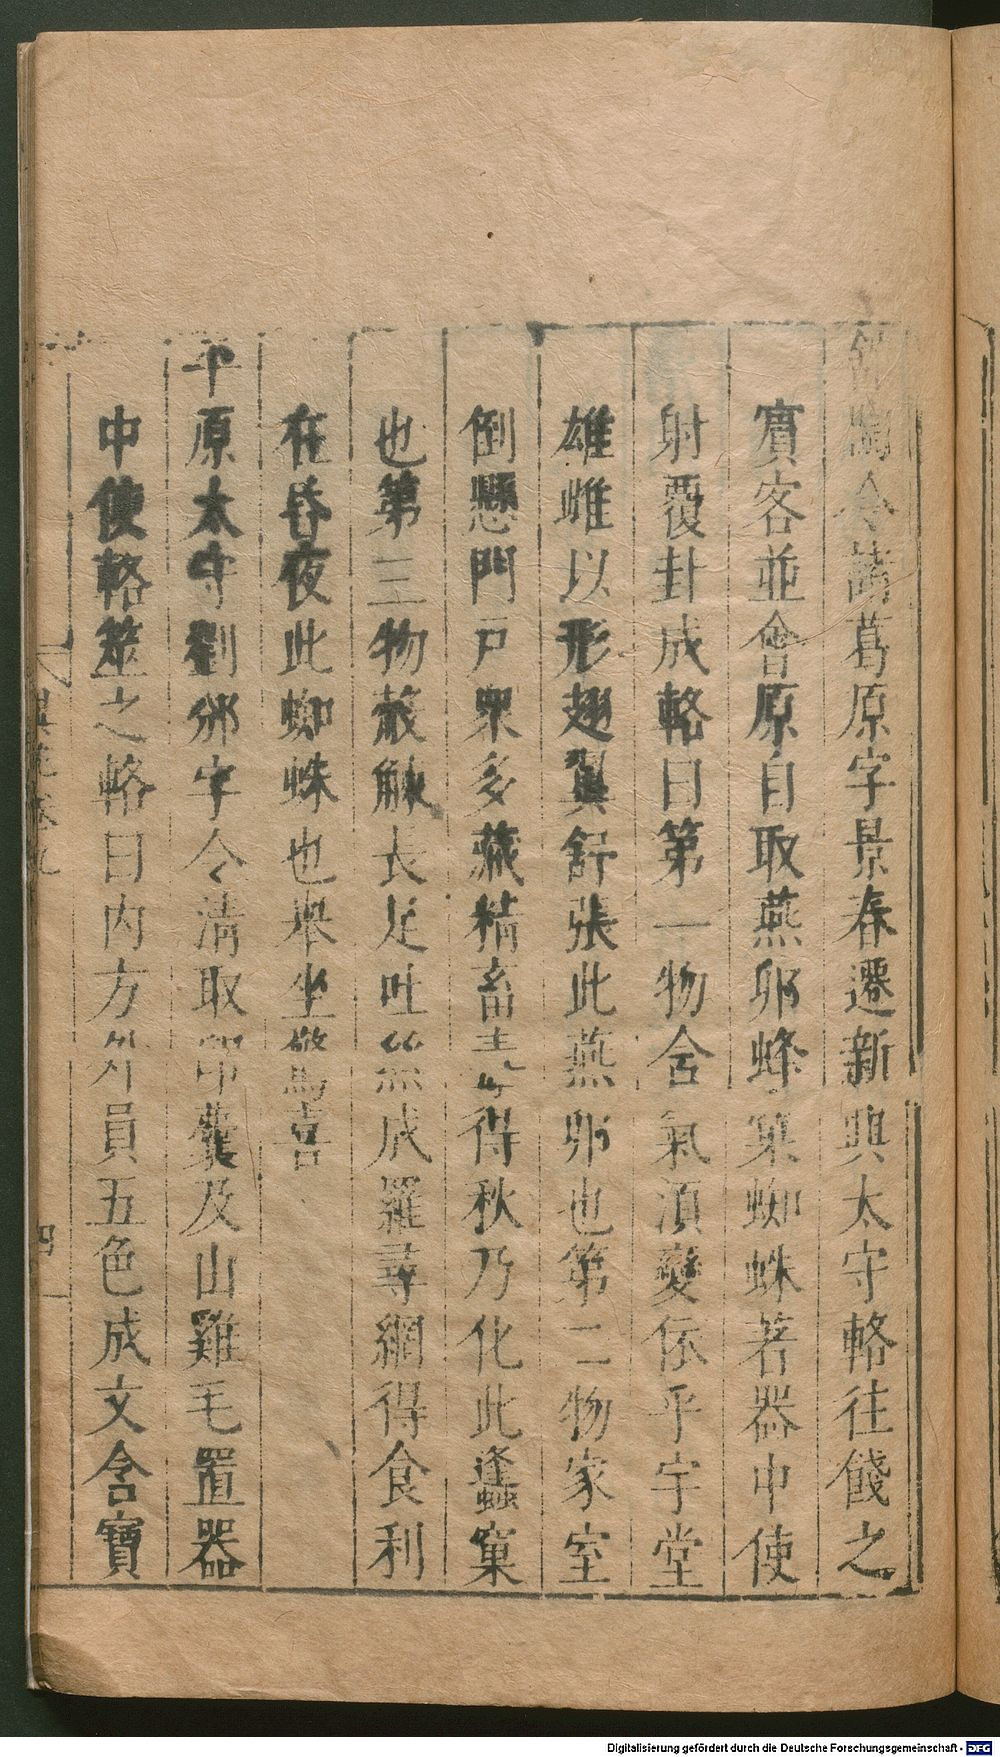 館陶令諸葛原字景春遷新興太守輅往餞之
賓客並會原自取燕卵蜂窠蜘蛛著器中使
射覆卦成輅曰第一物含氣湏變依乎宇堂
雄雌以形翅翼舒張此燕卵也第二物家室
倒懸門戸衆多藏精畜毒得秋乃化此蠭窠
也第三物觳觫長足吐絲成羅尋網得食利
在昏夜此蜘蛛也舉坐驚喜
平原太守劉邠字令清取印囊及山雞毛置器
中使輅筮之輅曰内方外員五色成文含寶
異苑卷九
四
Digitalisierung gefördert durch die Deutsche Forschungsgemeinschaft - DFG